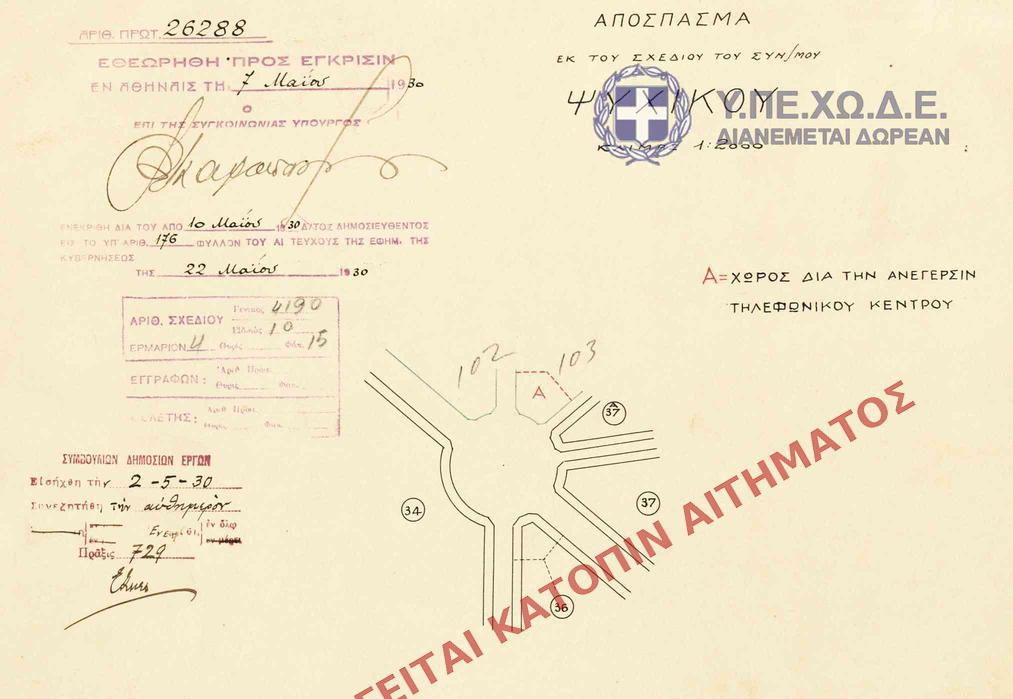 ΑΡΙΘ. ΠΡΩΤ. 26288
ΕΘΕΩΡΗΘΗ ΠΡΟΣ ΕΓΚΡΙΣΙΝ
ΕΝ ΑΘΗΝΑΙΣ ΤΗ. 7 Μαΐου 1930
Ο
ΕΠΙ ΤΗΣ ΣΥΓΚΟΙΝΩΝΙΑΣ ΥΠΟΥΡΓΟΣ
ΕΝΕΚΡΙΘΗ ΔΙΑ ΤΟΥ ΑΠΟ 10 Μαΐου 1930 Δ/ΤΟΣ ΔΗΜΟΣΙΕΥΘΕΝΤΟΣ
ΕΙΣ ΤΟ ΥΠ' ΑΡΙΘ. 176 ΦΥΛΛΟΝ ΤΟΥ Α! ΤΕΥΧΟΥΣ ΤΗΣ ΕΦΗΜ. ΤΗΣ
ΚΥΒΕΡΝΗΣΕΩΣ
ΤΗΣ 22 Μαΐου 1930
ΑΡΙΘ. ΣΧΕΔΙΟΥ
Γενικὸς 4190
Εἰδικὸς 10
ΕΡΜΑΡΙΟΝ 4 Θυρὶς Φακ. 15
ΕΓΓΡΑΦΩΝ:
Ἀριθ. Πρωτ.
Θυρὶς Φακ.
ΜΕΛΕΤΗΣ:
Ἀριθ. Πρωτ.
Θυρὶς Φακ.
ΣΥΜΒΟΥΛΙΟΝ ΔΗΜΟΣΙΩΝ ΕΡΓΩΝ
Εἰσήχθη τὴν 2-5-30
Συνεζητήθη τὴν αὐθημερὸν
ἐν ὅλῳ
ἐν μέρει
Πρᾶξις 729
ΑΠΟΣΠΑΣΜΑ
ΕΚ ΤΟΥ ΣΧΕΔΙΟΥ ΤΟΥ ΣΥΝ/ΜΟΥ
ΨΥΧΙΚΟΥ
ΚΛΙΜΑΞ 1:2000
Υ.ΠΕ.ΧΩ.Δ.Ε.
ΔΙΑΝΕΜΕΤΑΙ ΔΩΡΕΑΝ
Α=ΧΩΡΟΣ ΔΙΑ ΤΗΝ ΑΝΕΓΕΡΣΙΝ
ΤΗΛΕΦΩΝΙΚΟΥ ΚΕΝΤΡΟΥ
102
103
Α
37Α
34
37
36
ΓΕΙΤΑΙ ΚΑΤΟΠΙΝ ΑΙΤΗΜΑΤΟΣ